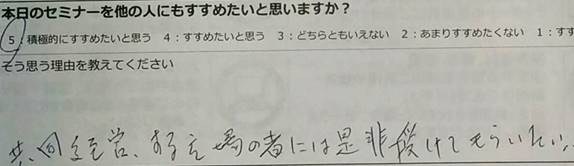 本日のセミナーを他の人にもすすめたいと思いますか？
5：積極的にすすめたいと思う 4：すすめたいと思う 3：どちらともいえない 2：あまりすすめたくない 1：すす
そう思う理由を教えてください
共同経営、する立場の者には是非受けてもらいたい。